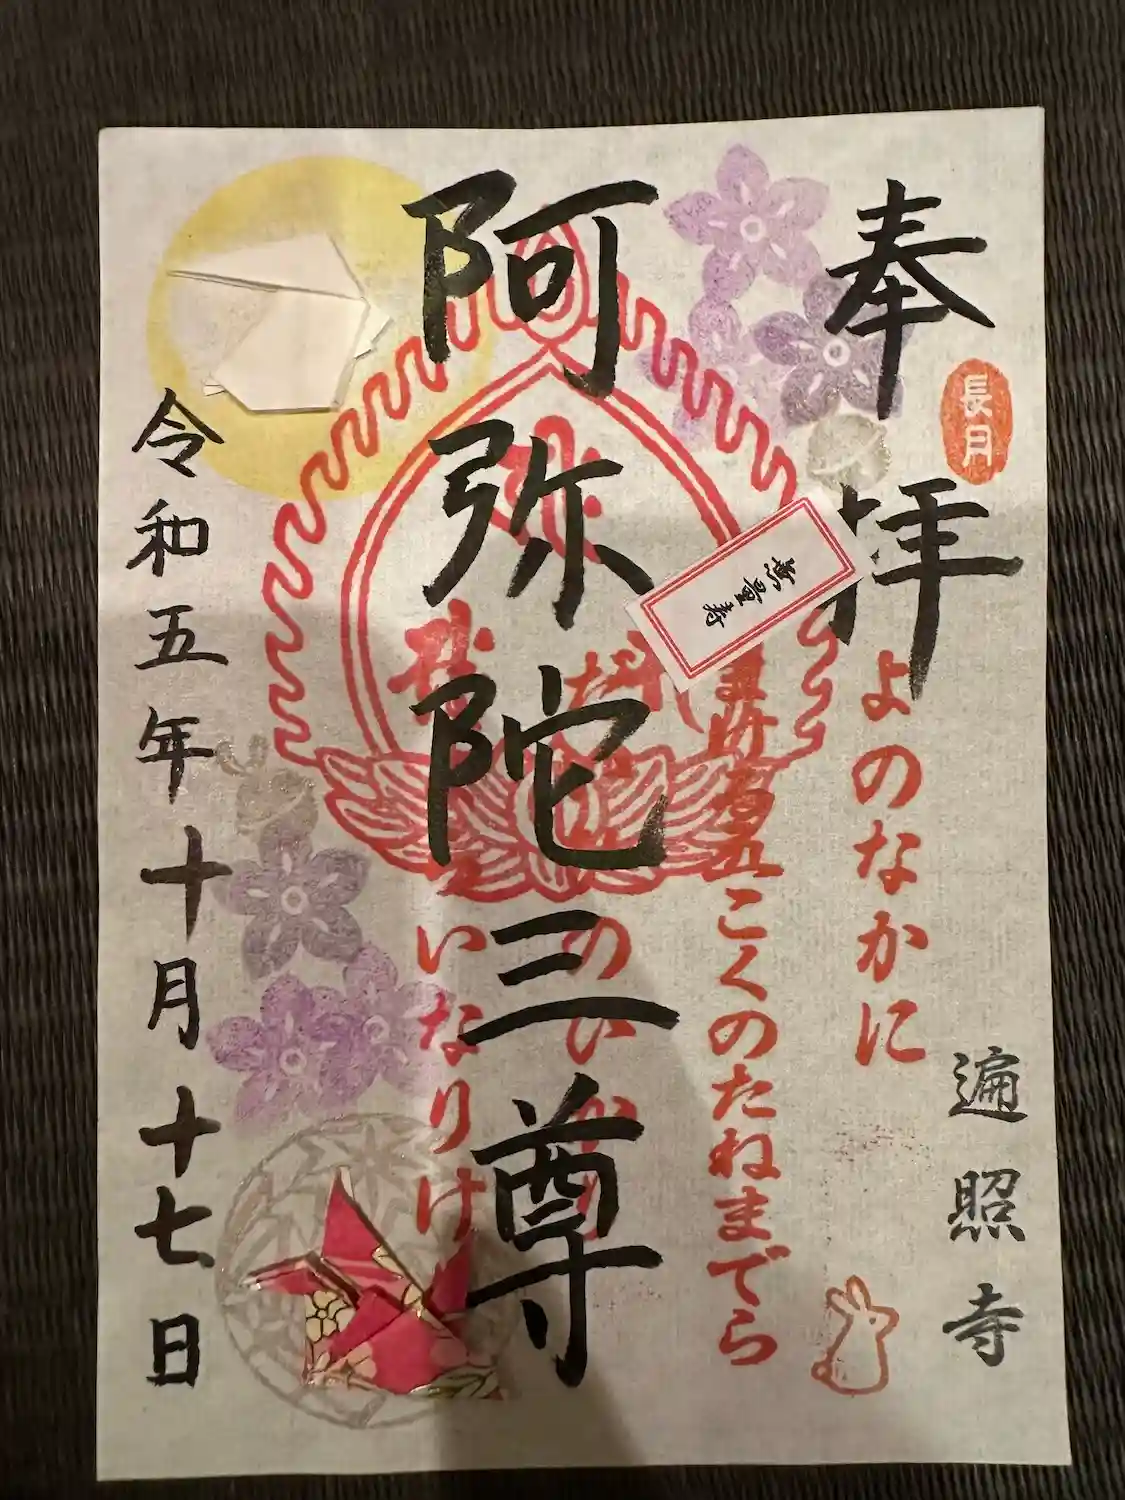 奉拝
長月
よのなかに
こくのたねまでら
無量寿
阿弥陀三尊
いなりけ
令和五年十月十七日
遍照寺